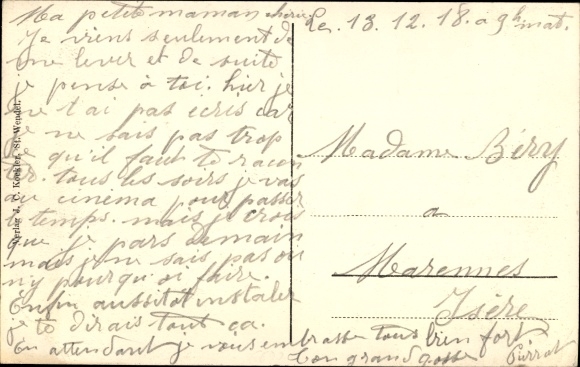 Ma petite maman cherie
Le. 13. 12. 18. à 9h mat.
Je viens seulement de
me lever et de suite
je pense à toi. hier je
ne t'ai pas ecris car
je ne sais pas trop
ce qu'il faut te racon
ter. tous les soirs je vas
au cinema pour passer
le temps. mais je crois
que je pars demain
mais je ne sais pas ou
n'y pourquoi faire.
Enfin aussitot instaler
je te dirais tout ça.
En attendant je vous embrasse tous bien fort
Ton grand gosse Pierrot
Madame Béry
a
Marennes
Isère
Verlag J. C. Kockler, St. Wendel.